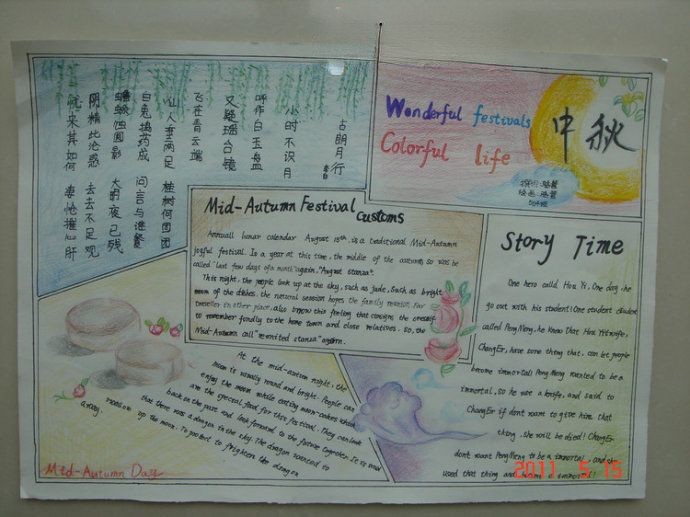 古朗月行
小时不识月
呼作白玉盘
又疑瑶台镜
飞在青云端
仙人垂两足 桂树何团团
白兔捣药成 问言与谁餐
蟾蜍蚀圆影 大明夜已残
阴精此沦惑 去去不足观
忧来其如何 凄怆摧心肝
Wonderful festivals
Colorful life
中秋
Mid-Autumn Festival
Customs
Annuall lunar calendar August 15th, is a traditional Mid-Autumn
joyful festival. In a year at this time, the middle of the autumn, so was be
called "last few days of a month" again, "August stanza".
This night, the people look up at the sky, such as jade, such as bright
moon of the dishes, the natural session hopes the family reunion. Far
traveller in other place, also borrow this feeling that consigns the oneself
to remember fondly to the home town and close relatives. So, the
Mid-Autumn call "reunited stanza" again.
Story Time
One hero called Hou Yi. One day, he
go out with his student! One student
called PengMeng, he know that Hou Yi wife,
ChangEr, have some thing that can let people
become immortal! PengMeng wanted to be a
immortal, so he use a knife, and said to
ChangEr if dont want to give him that
thing, she will be died! ChangEr
dont want PengMeng to be a immortal, and
used that thing and immortal!
At the mid-autumn night, the
moon is usually round and bright. People can
enjoy the moon while eating moon-cakes which
are the special food for this festival. They can look
back on the past and look forward to the future together. It is said
that there was a dragon in the sky. The dragon wanted to
up the moon. To protect to frighten the dragon
away.
Mid-Autumn Day
2011 5 15